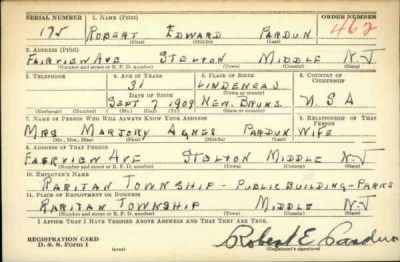 SERIAL NUMBER 1. NAME (Print) ORDER NUMBER
175 ROBERT EDWARD PARDUN 462
(First) (Middle) (Last)
2. ADDRESS (Print)
FAIRVIEW AVE STELTON MIDDLE N.J
(Number and street or R. F. D. number) (Town) (County) (State)
3. TELEPHONE 4. AGE IN YEARS 5. PLACE OF BIRTH 6. COUNTRY OF CITIZENSHIP
31 LINDENEAU
DATE OF BIRTH (Town or county)
SEPT 7 1909 NEW. BRUNS. U.S.A
(Mo.) (Day) (Yr.) (State or country)
7. NAME OF PERSON WHO WILL ALWAYS KNOW YOUR ADDRESS 8. RELATIONSHIP OF THAT PERSON
MRS MARJORY AGNES PARDUN WIFE
(Mr., Mrs., Miss) (First) (Middle) (Last)
9. ADDRESS OF THAT PERSON
FAIRVIEW AVE STELTON MIDDLE N.J
(Number and street or R. F. D. number) (Town) (County) (State)
10. EMPLOYER'S NAME
RARITAN TOWNSHIP - PUBLIC BUILDING-PARKS
11. PLACE OF EMPLOYMENT OR BUSINESS
RARITAN TOWNSHIP MIDDLE N.J
(Number and street or R. F. D. number) (Town) (County) (State)
I AFFIRM THAT I HAVE VERIFIED ABOVE ANSWERS AND THAT THEY ARE TRUE.
REGISTRATION CARD Robert E. Pardun
D. S. S. Form 1 (Registrant's signature)